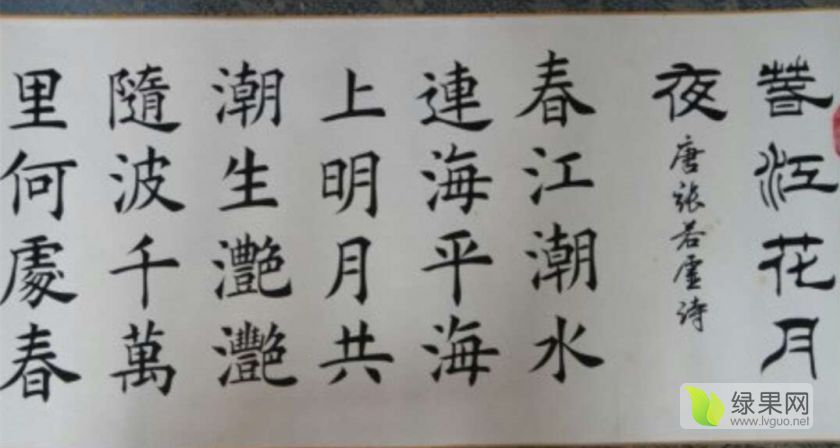 春江花月
夜
唐張若虛詩
春江潮水
連海平海
上明月共
潮生灧灧
隨波千萬
里何處春
绿果网
www.lvguo.net